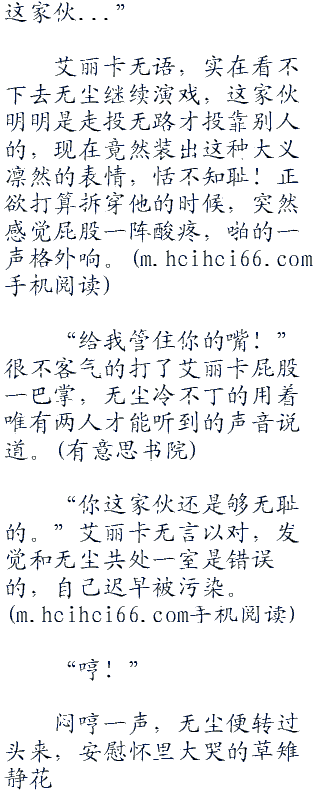 这家伙..."
艾丽卡无语，实在看不
下去无尘继续演戏，这家伙
明明是走投无路才投靠别人
的，现在竟然装出这种大义
凛然的表情，恬不知耻！正
欲打算拆穿他的时候，突然
感觉屁股一阵酸疼，啪的一
声格外响。(m.hcihci66.com
手机阅读)
“给我管住你的嘴！”
很不客气的打了艾丽卡屁股
一巴掌，无尘冷不丁的用着
唯有两人才能听到的声音说
道。(有意思书院)
“你这家伙还是够无耻
的。”艾丽卡无言以对，发
觉和无尘共处一室是错误
的，自己迟早被污染。
(m.hcihci66.com手机阅读)
“哼！”
闷哼一声，无尘便转过
头来，安慰怀里大哭的草雉
静花